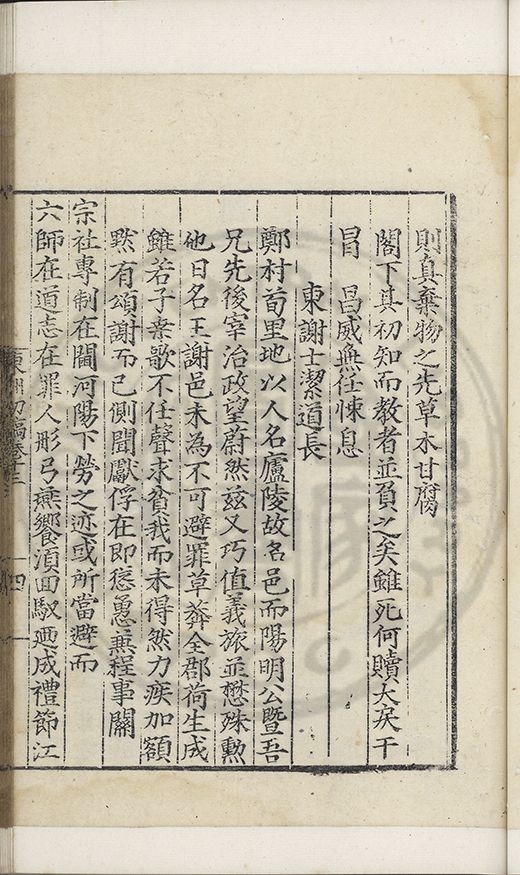 則真棄物之先草木甘腐
閣下其初知而教者並負之矣雖死何贖大戾干
冒　昌威無任悚息
柬謝士潔道長
鄭村荀里地以人名廬陵故名邑而陽明公暨吾
兄先後宰治政望蔚然茲又巧值義旅並懋殊勳
他日名王謝邑未為不可避罪草莽全郡荷生成
雖若子歌不任聲求貧我而未得然力疾加額
黙有頌謝而已側聞獻俘在即慫慂兼程事關
宗社專制在閫河陽下勞之迹或所當避而
六師在道志在罪人彤弓燕饗湏田馭迺成禮節江
東洲初稿卷十三
四